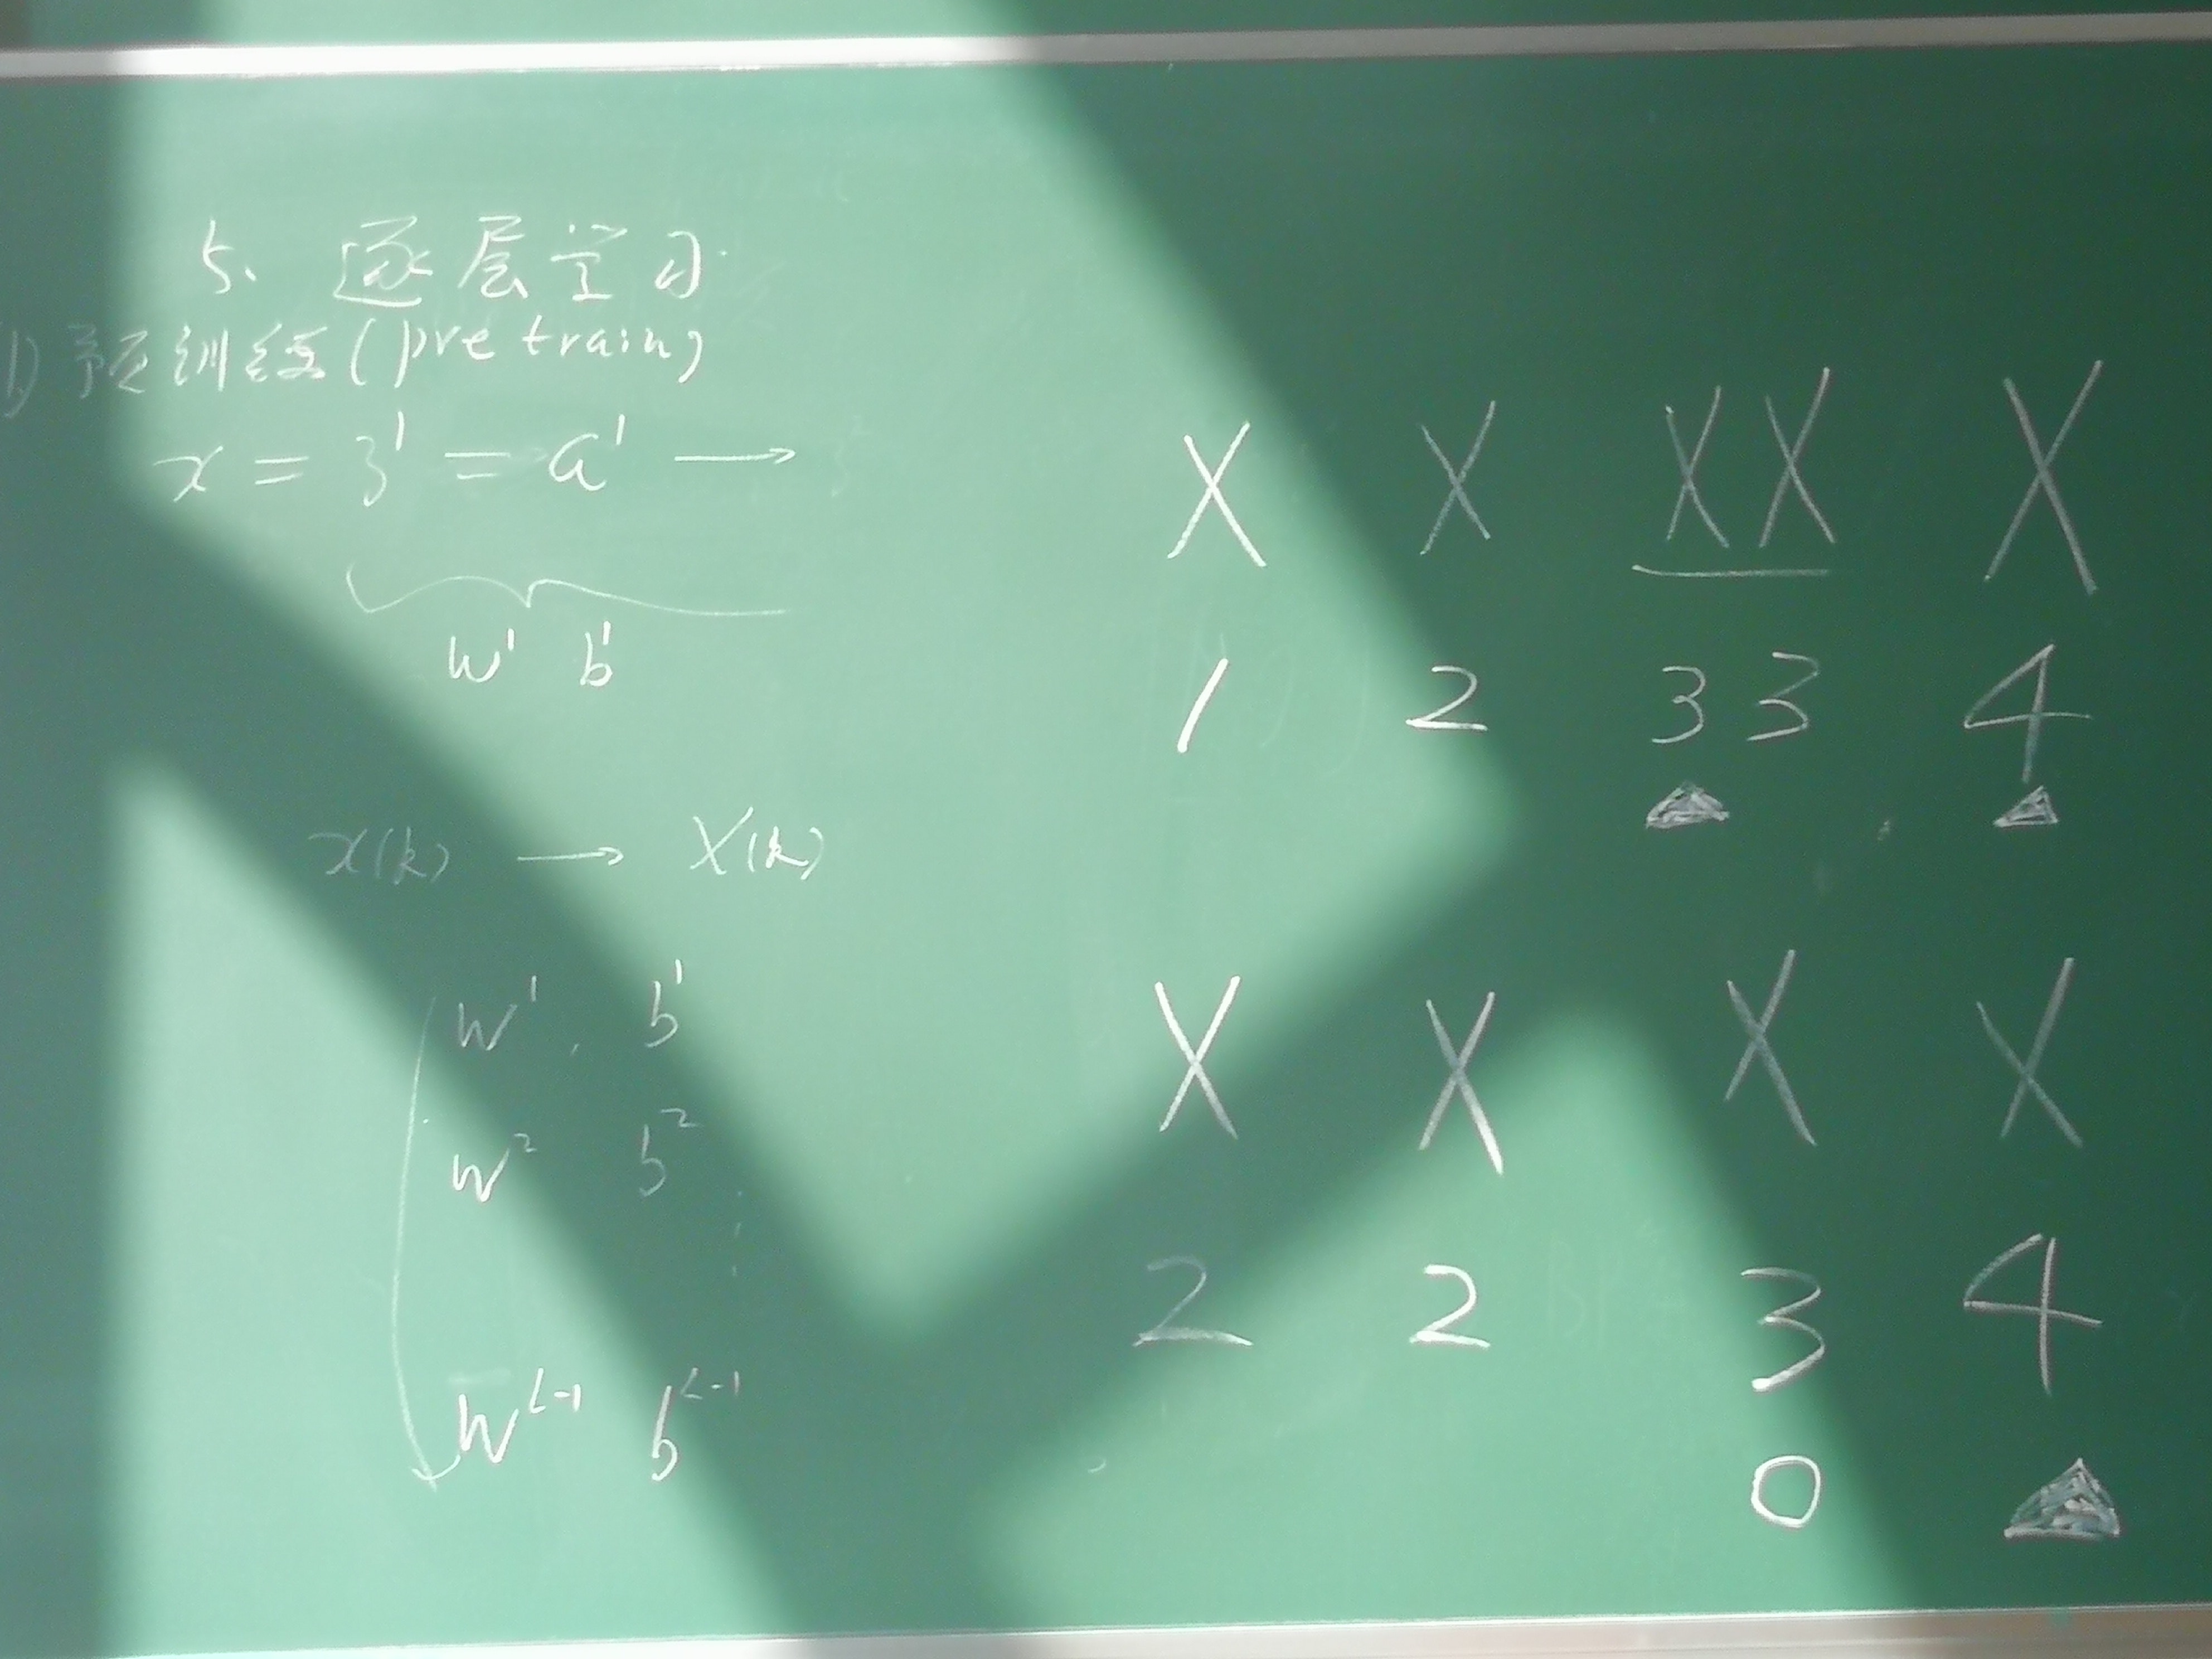 5、逐层学习
1) 预训练(pretrain)
x = z¹ = a¹ → z²
w¹ b¹
x(k) → X(k)
w¹, b¹
w² b²
⋮
w^{L-1} b^{L-1}
X X XX X
1 2 3 3 4
X X X X
2 2 3 4
0